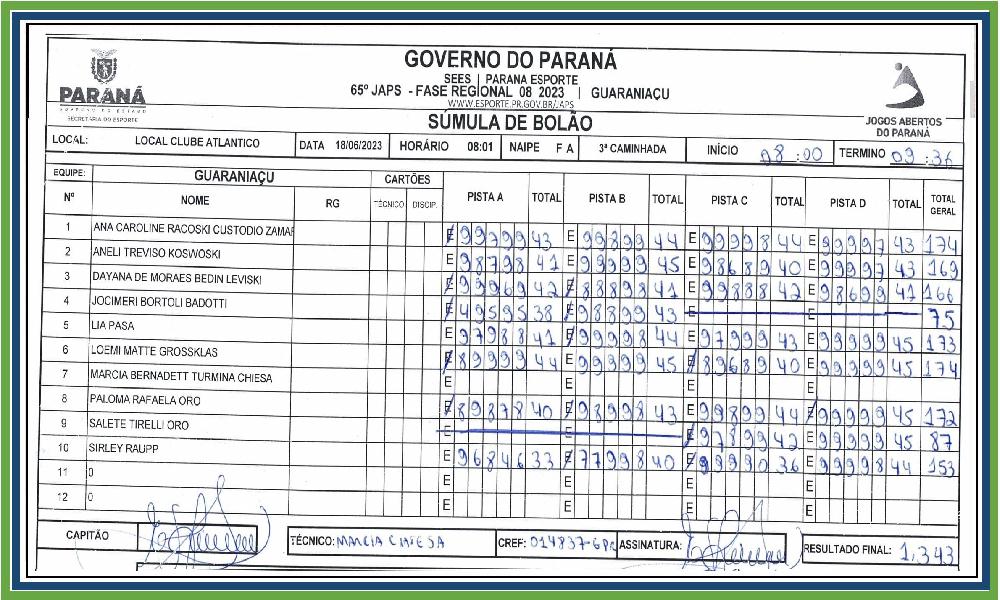 GOVERNO DO PARANÁ
SEES | PARANA ESPORTE
65º JAPS - FASE REGIONAL 08 2023 | GUARANIAÇU
WWW.ESPORTE.PR.GOV.BR/JAPS
SÚMULA DE BOLÃO
PARANÁ
GOVERNO DO ESTADO
SECRETARIA DO ESPORTE
JOGOS ABERTOS
DO PARANÁ
LOCAL: LOCAL CLUBE ATLANTICO DATA 18/06/2023 HORÁRIO 08:01 NAIPE F A 3ª CAMINHADA INÍCIO 08:00 TERMINO 09:36
EQUIPE: GUARANIAÇU CARTÕES
Nº NOME RG TÉCNICO DISCIP. PISTA A TOTAL PISTA B TOTAL PISTA C TOTAL PISTA D TOTAL TOTAL GERAL
1 ANA CAROLINE RACOSKI CUSTODIO ZAMAR E 99799 43 E 99899 44 E 99998 44 E 99997 43 174
2 ANELI TREVISO KOSWOSKI E 98798 41 E 99999 45 E 98689 40 E 99997 43 169
3 DAYANA DE MORAES BEDIN LEVISKI E 99969 42 E 88898 41 E 99888 42 E 98699 41 166
4 JOCIMERI BORTOLI BADOTTI E 49595 38 E 98899 43 E E 75
5 LIA PASA E 97988 41 E 99998 44 E 97999 43 E 99999 45 173
6 LOEMI MATTE GROSSKLAS E 89999 44 E 99999 45 E 89689 40 E 99999 45 174
7 MARCIA BERNADETT TURMINA CHIESA E E E E
8 PALOMA RAFAELA ORO E 89878 40 E 98998 43 E 99899 44 E 99999 45 172
9 SALETE TIRELLI ORO E E E 97899 42 E 99999 45 87
10 SIRLEY RAUPP E 96846 33 E 77998 40 E 99990 36 E 99998 44 153
11 0 E E E E
12 0 E E E E
CAPITÃO TÉCNICO: MARCIA CHIESA CREF: 014837-GPR ASSINATURA: RESULTADO FINAL: 1,343